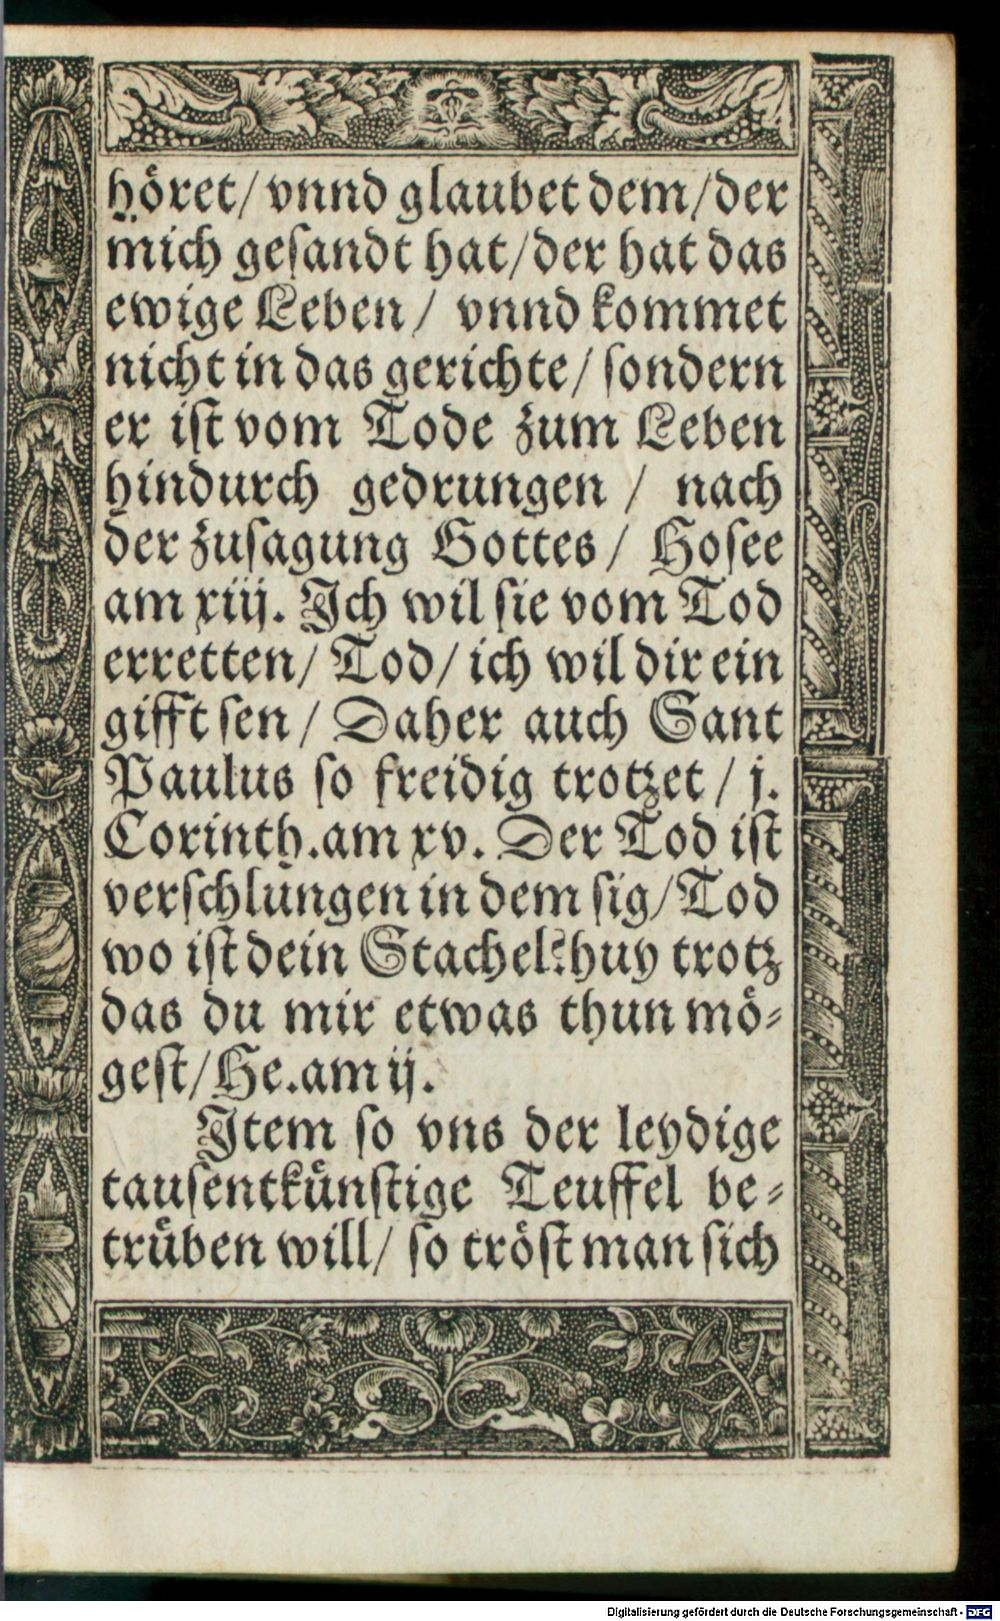 höret/ vnnd glaubet dem/der
mich gesandt hat/der hat das
ewige Leben/ vnnd kommet
nicht in das gerichte/ sondern
er ist vom Tode zum Leben
hindurch gedrungen / nach
der zusagung Gottes/ Hosee
am xiij. Jch wil sie vom Tod
erretten/ Tod/ ich wil dir ein
gifft sen/ Daher auch Sant
Paulus so freidig trotzet/ j.
Corinth.am xv. Der Tod ist
verschlungen in dem sig/Tod
wo ist dein Stachel? huy trotz
das du mir etwas thun mö-
gest/He.am ij.
Jtem so vns der leydige
tausentkünstige Teuffel be-
trüben will/ so tröst man sich
Digitalisierung gefördert durch die Deutsche Forschungsgemeinschaft - DFG